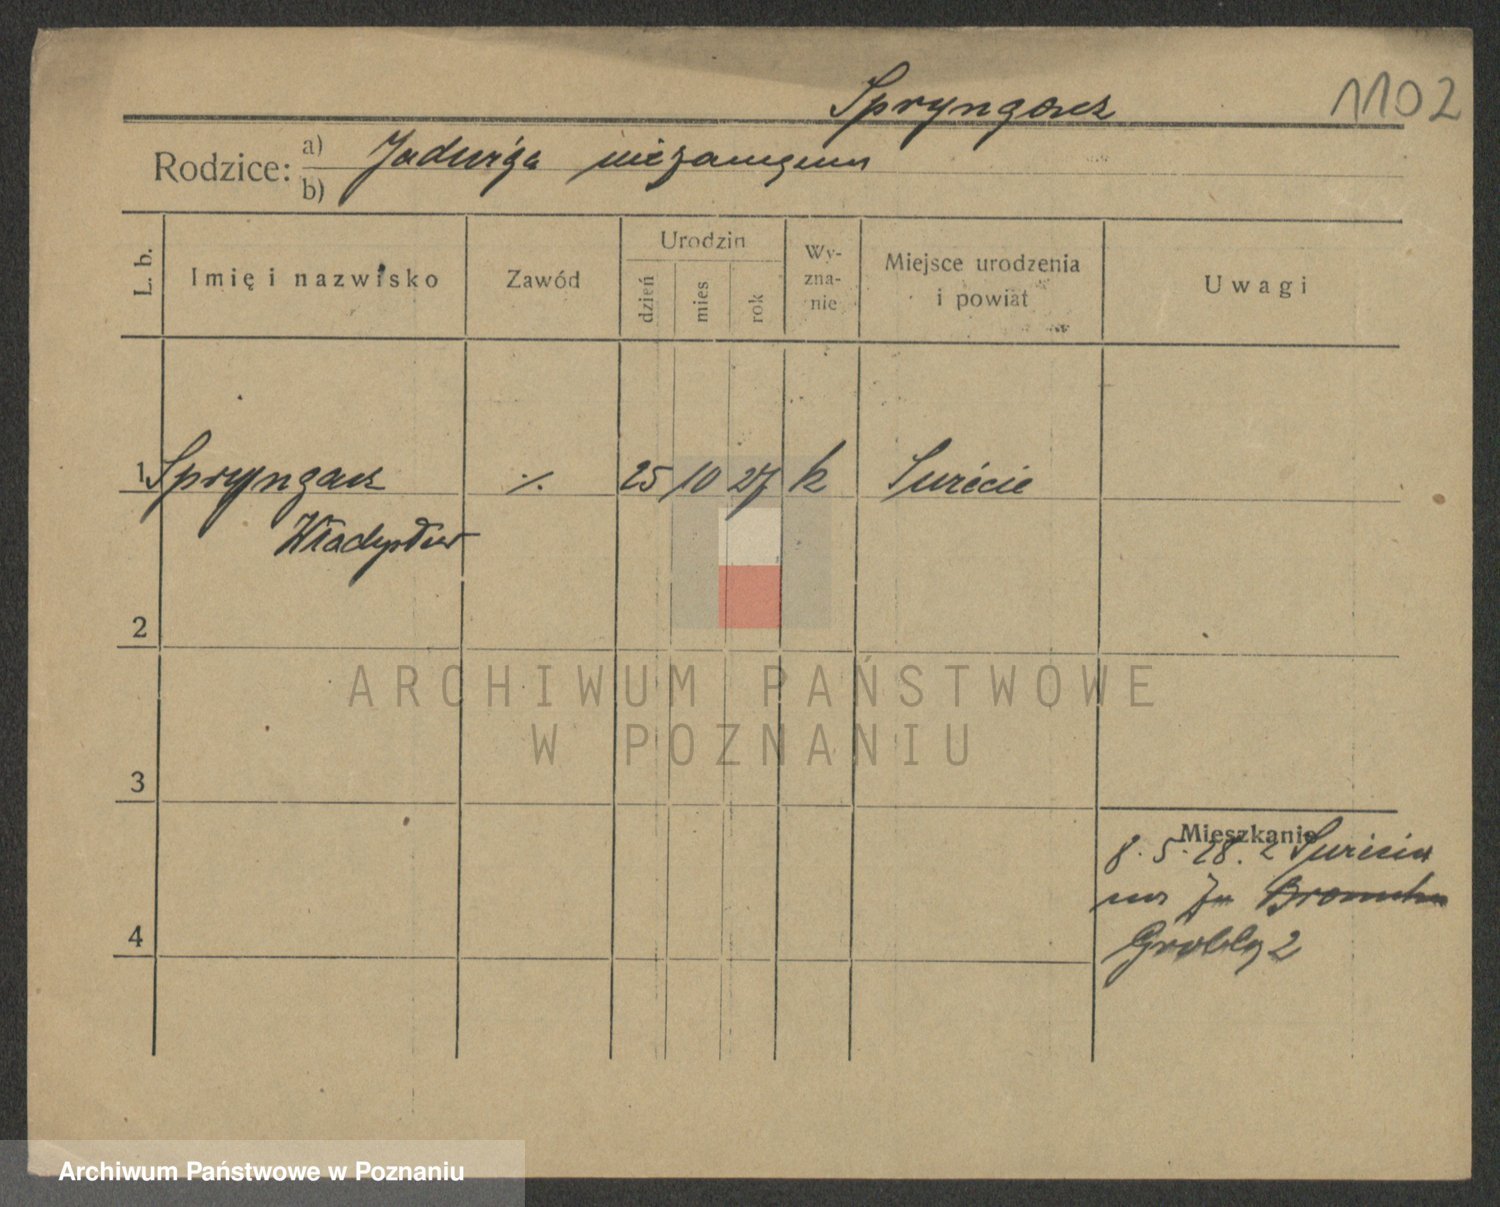 Spryngacz 1102
Rodzice: a) Jadwiga niezamężna
b)
L. b. Imię i nazwisko Zawód Urodzin dzień mies rok Wyznanie Miejsce urodzenia i powiat Uwagi
1 Spryngacz ./. 25 10 27 k
Władysław
2
ARCHIWUM PAŃSTWOWE
W POZNANIU
3
Mieszkanie
8. 5. 28. z
4
Grobla 2
Archiwum Państwowe w Poznaniu